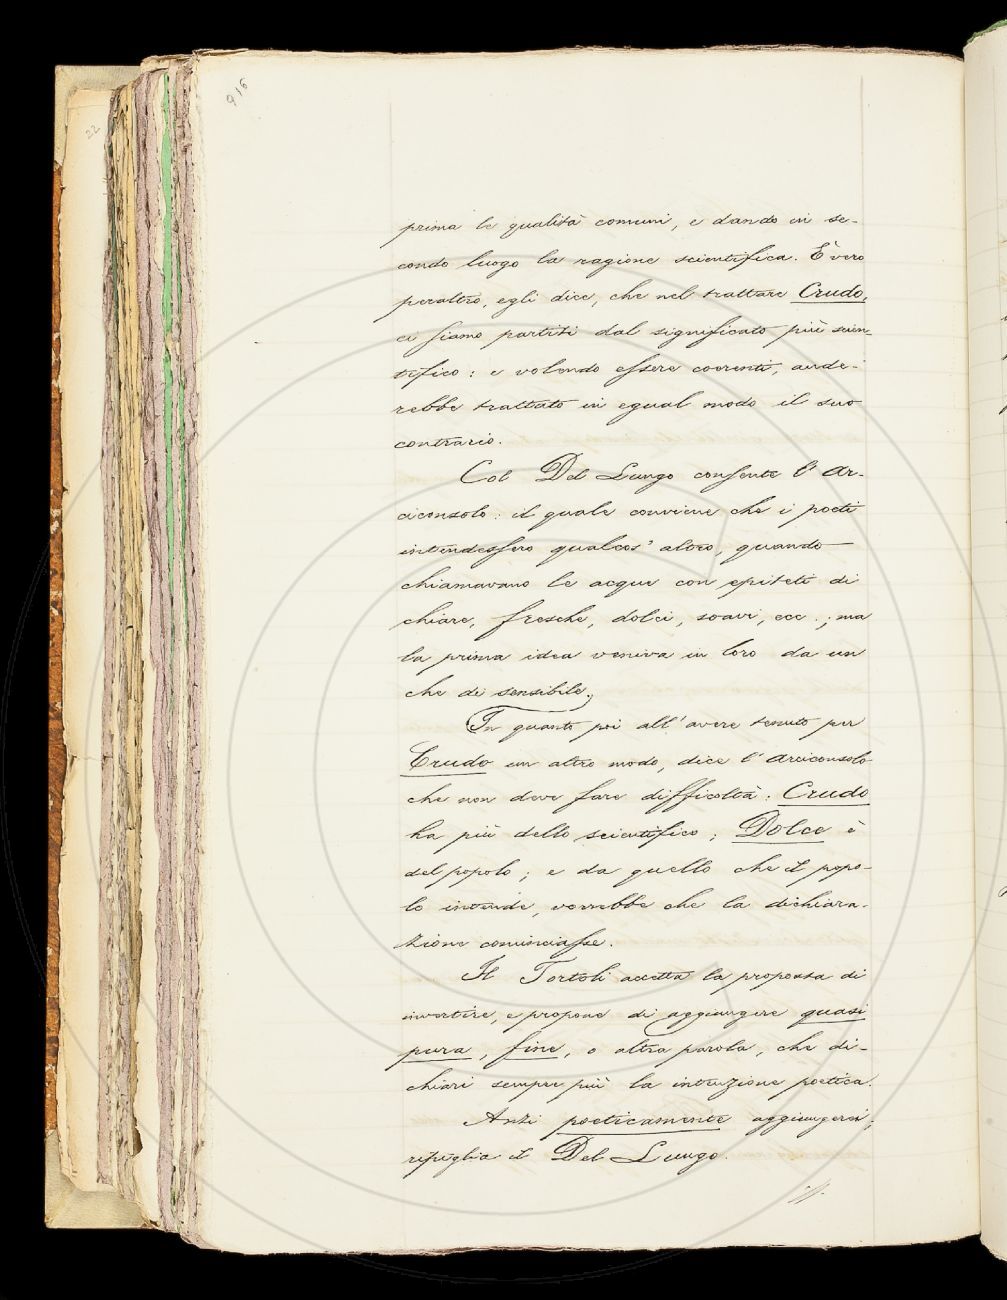 916
22
prima le qualità comuni, e dando in se-
condo luogo la ragione scientifica. È vero
peraltro, egli dice, che nel trattare Crudo,
ci siamo partiti dal significato più scien-
tifico: e volendo essere coerenti, ande-
rebbe trattato in egual modo il suo
contrario.
Col Del Lungo consente l'Ar-
ciconsolo: il quale conviene che i poeti
intendessero qualcos'altro, quando
chiamavano le acque con epiteti di
chiare, fresche, dolci, soavi, ecc.; ma
la prima idea veniva in loro da un
che di sensibile.
In quanto poi all'avere tenuto per
Crudo un altro modo, dice l'Arciconsolo
che non deve fare difficoltà: Crudo
ha più dello scientifico; Dolce è
del popolo; e da quello che il popo-
lo intende, vorrebbe che la dichiara-
zione cominciasse.
Il Tortoli accetta la proposta di
invertire, e propone di aggiungere quasi
pura, fine, o altra parola, che di-
chiari sempre più la intuizione poetica.
Anzi poeticamente aggiungerei,
ripiglia il Del Lungo.